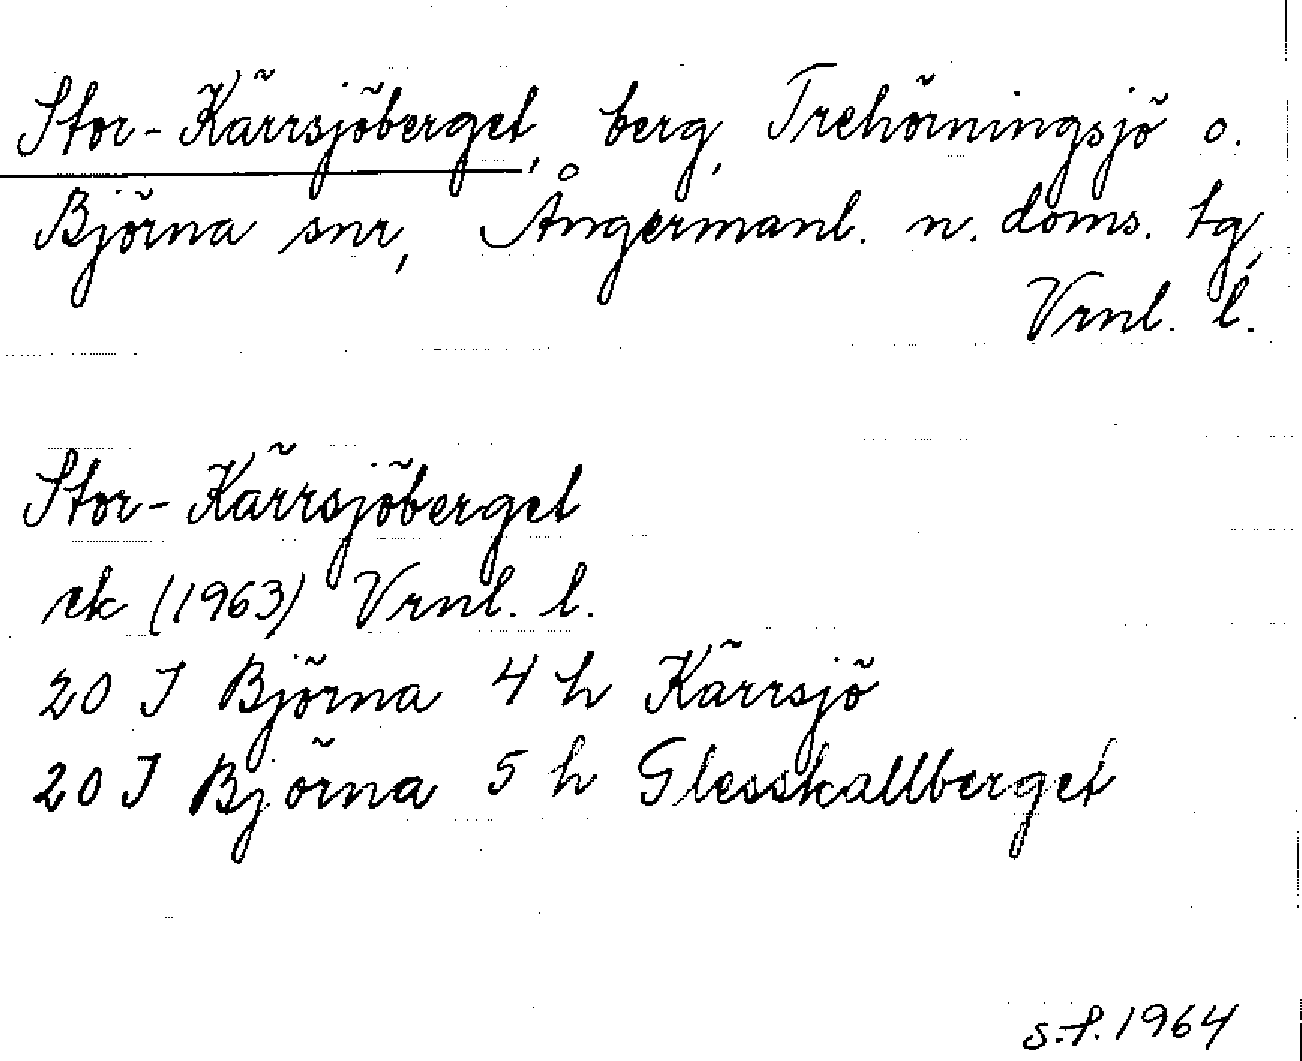 Stor-Kärrsjöberget, berg, Trehörningsjö o.
Björna snr, Ångermanl. n. doms. tg,
Vrnl. l.
Stor-Kärrsjöberget
ek (1963) Vrnl. l.
20 I Björna 4 h Kärrsjö
20 I Björna 5 h Glesskallberget
S.F. 1964